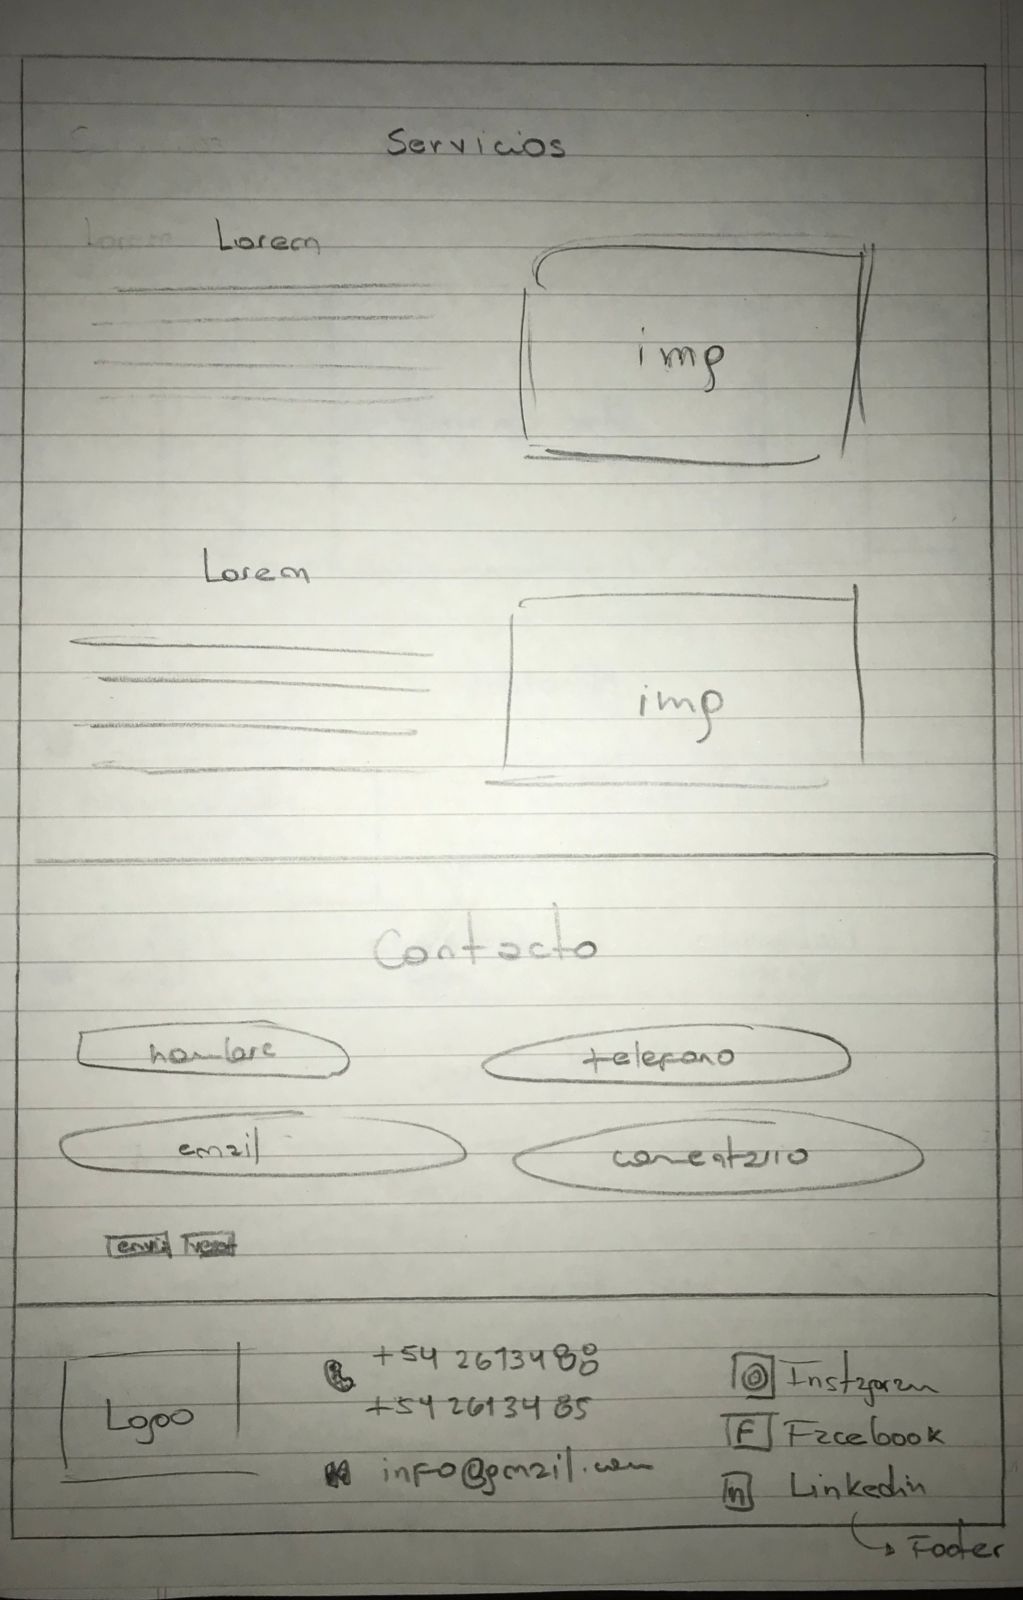 Servicios
Lorem
img
Lorem
img
Contacto
nombre
telefono
email
comentario
Logo
+54 26134 88
+54 26134 85
info@gmail.com
Instagram
F Facebook
in Linkedin
Footer